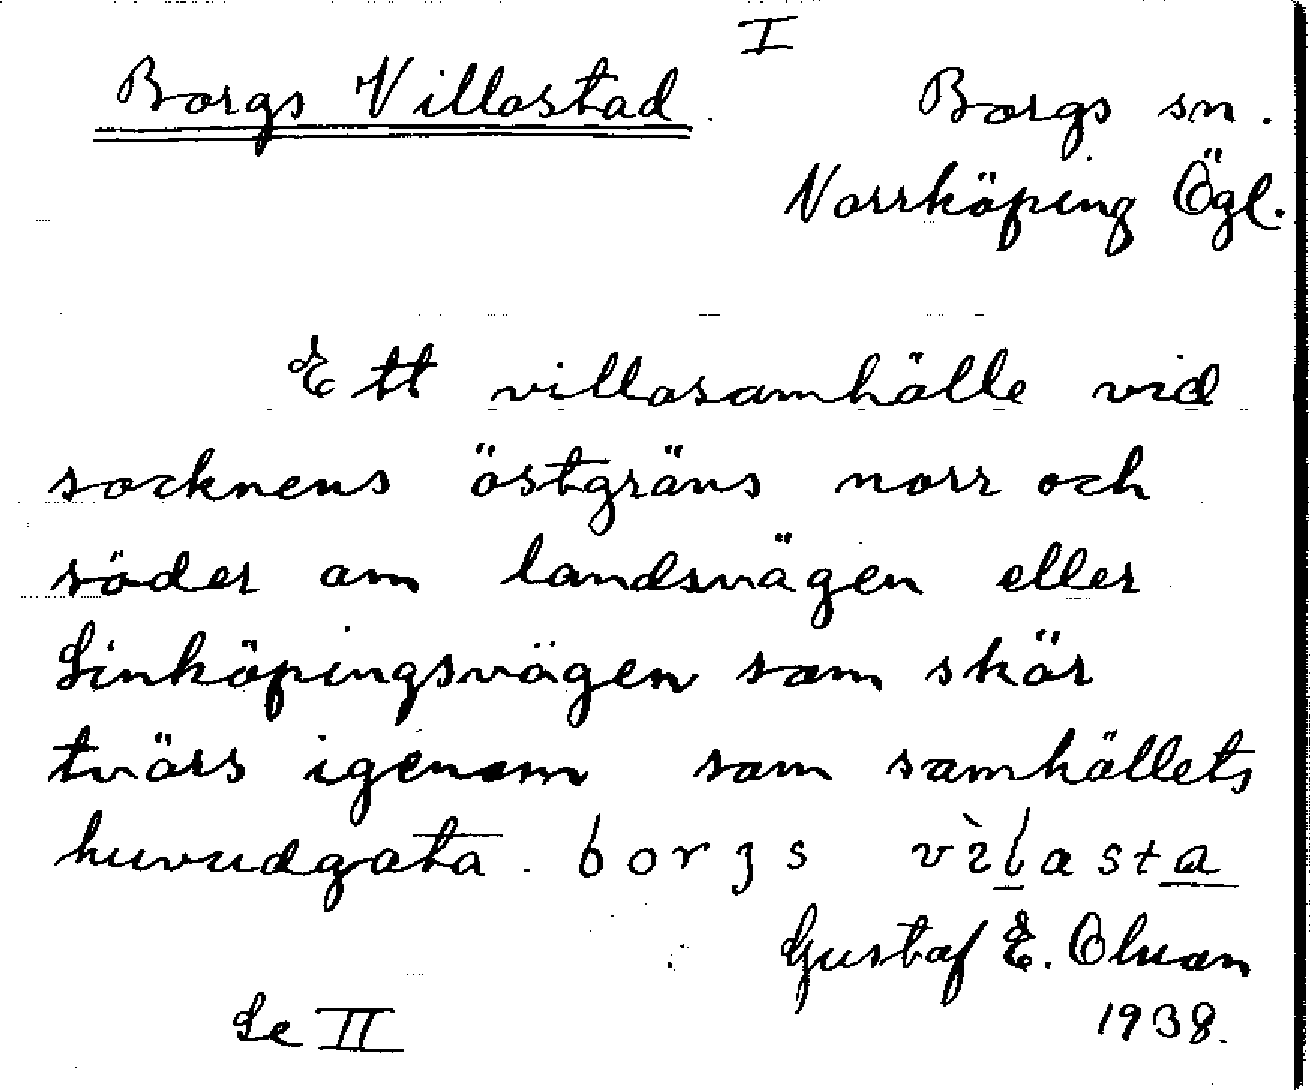 I
Borgs Villastad. Borgs sn.
Norrköping Ögl.
Ett villasamhälle vid
socknens östgräns norr och
söder om landsvägen eller
Linköpingsvägen som skär
tvärs igenom som samhällets
huvudgata. borgs vìlasta
Gustaf E. Olsson
Se II 1938.